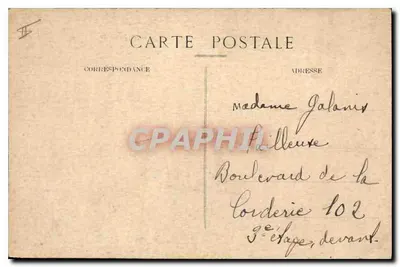 CARTE POSTALE
CORRESPONDANCE
ADRESSE
Madame Galanis
Tailleuse
Boulevard de la
Corderie 102
3e étage, devant.
CPAPHIL